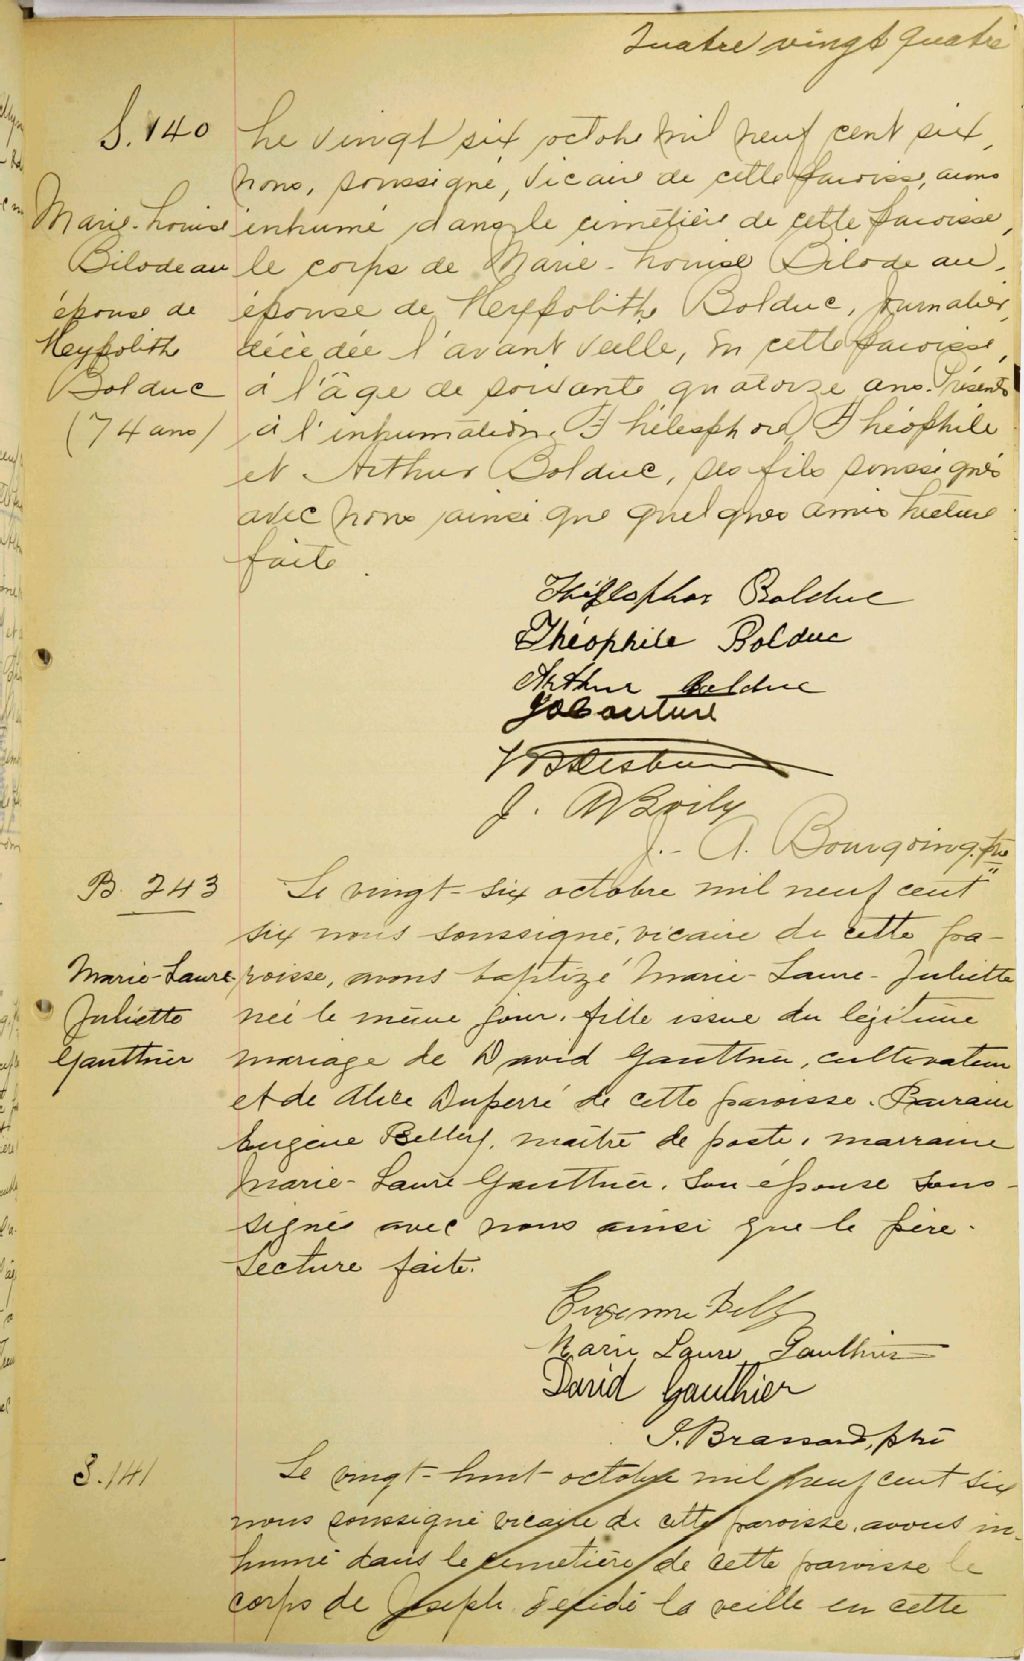 Quatre vingt quatre
S. 140
Marie-Louise
Bilodeau
épouse de
Heypolithe
Bolduc
(74 ans)
Le vingt six octobre mil neuf cent six,
nous, soussigné, vicaire de cette paroisse, avons
inhumé dans le cimetière de cette paroisse,
le corps de Marie-Louise Bilodeau,
épouse de Heypolithe Bolduc, journalier,
décédée l'avant veille, en cette paroisse,
à l'âge de soixante quatorze ans. Présents
à l'inhumation. Thélesphore, Théophile
et Arthur Bolduc, ses fils soussignés
avec nous ainsi que quelques amis Lecture
faite.
Bolduc
Théophile Bolduc
Arthur Bolduc
Couture
J. Boily
J.- A. Bourgoing. ptre
B. 243
Marie-Laure
Juliette
Gauthier
Le vingt-six octobre mil neuf cent
six nous soussigné, vicaire de cette pa-
roisse, avons baptizé Marie-Laure-Juliette
née le même jour, fille issue du légitime
mariage de David Gauthier, cultivateur
et de Alice Duperré de cette paroisse. Parrain
Eugène Belley, maître de poste, marraine
Marie-Laure Gauthier, son épouse sous-
signés avec nous ainsi que le père.
Lecture faite.
Marie Laure Gauthier
David Gauthier
J. Brassard, ptre
S. 141
Le vingt-huit octobre mil neuf cent six
nous soussigné vicaire de cette paroisse, avons in-
humé dans le cimetière de cette paroisse le
corps de Joseph décédé la veille en cette